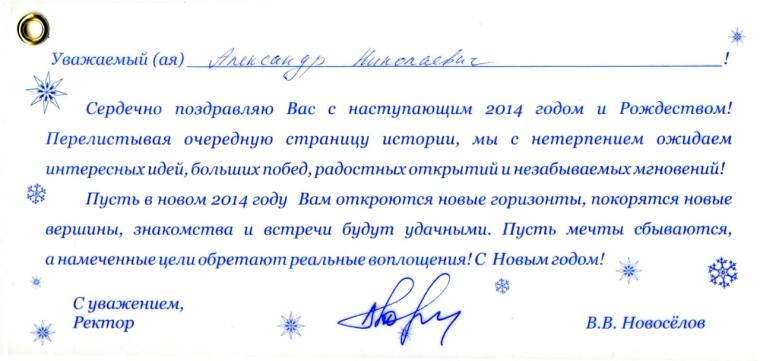 Уважаемый (ая) Александр Николаевич !
Сердечно поздравляю Вас с наступающим 2014 годом и Рождеством!
Перелистывая очередную страницу истории, мы с нетерпением ожидаем
интересных идей, больших побед, радостных открытий и незабываемых мгновений!
Пусть в новом 2014 году Вам откроются новые горизонты, покорятся новые
вершины, знакомства и встречи будут удачными. Пусть мечты сбываются,
а намеченные цели обретают реальные воплощения! С Новым годом!
С уважением,
Ректор
В.В. Новосёлов